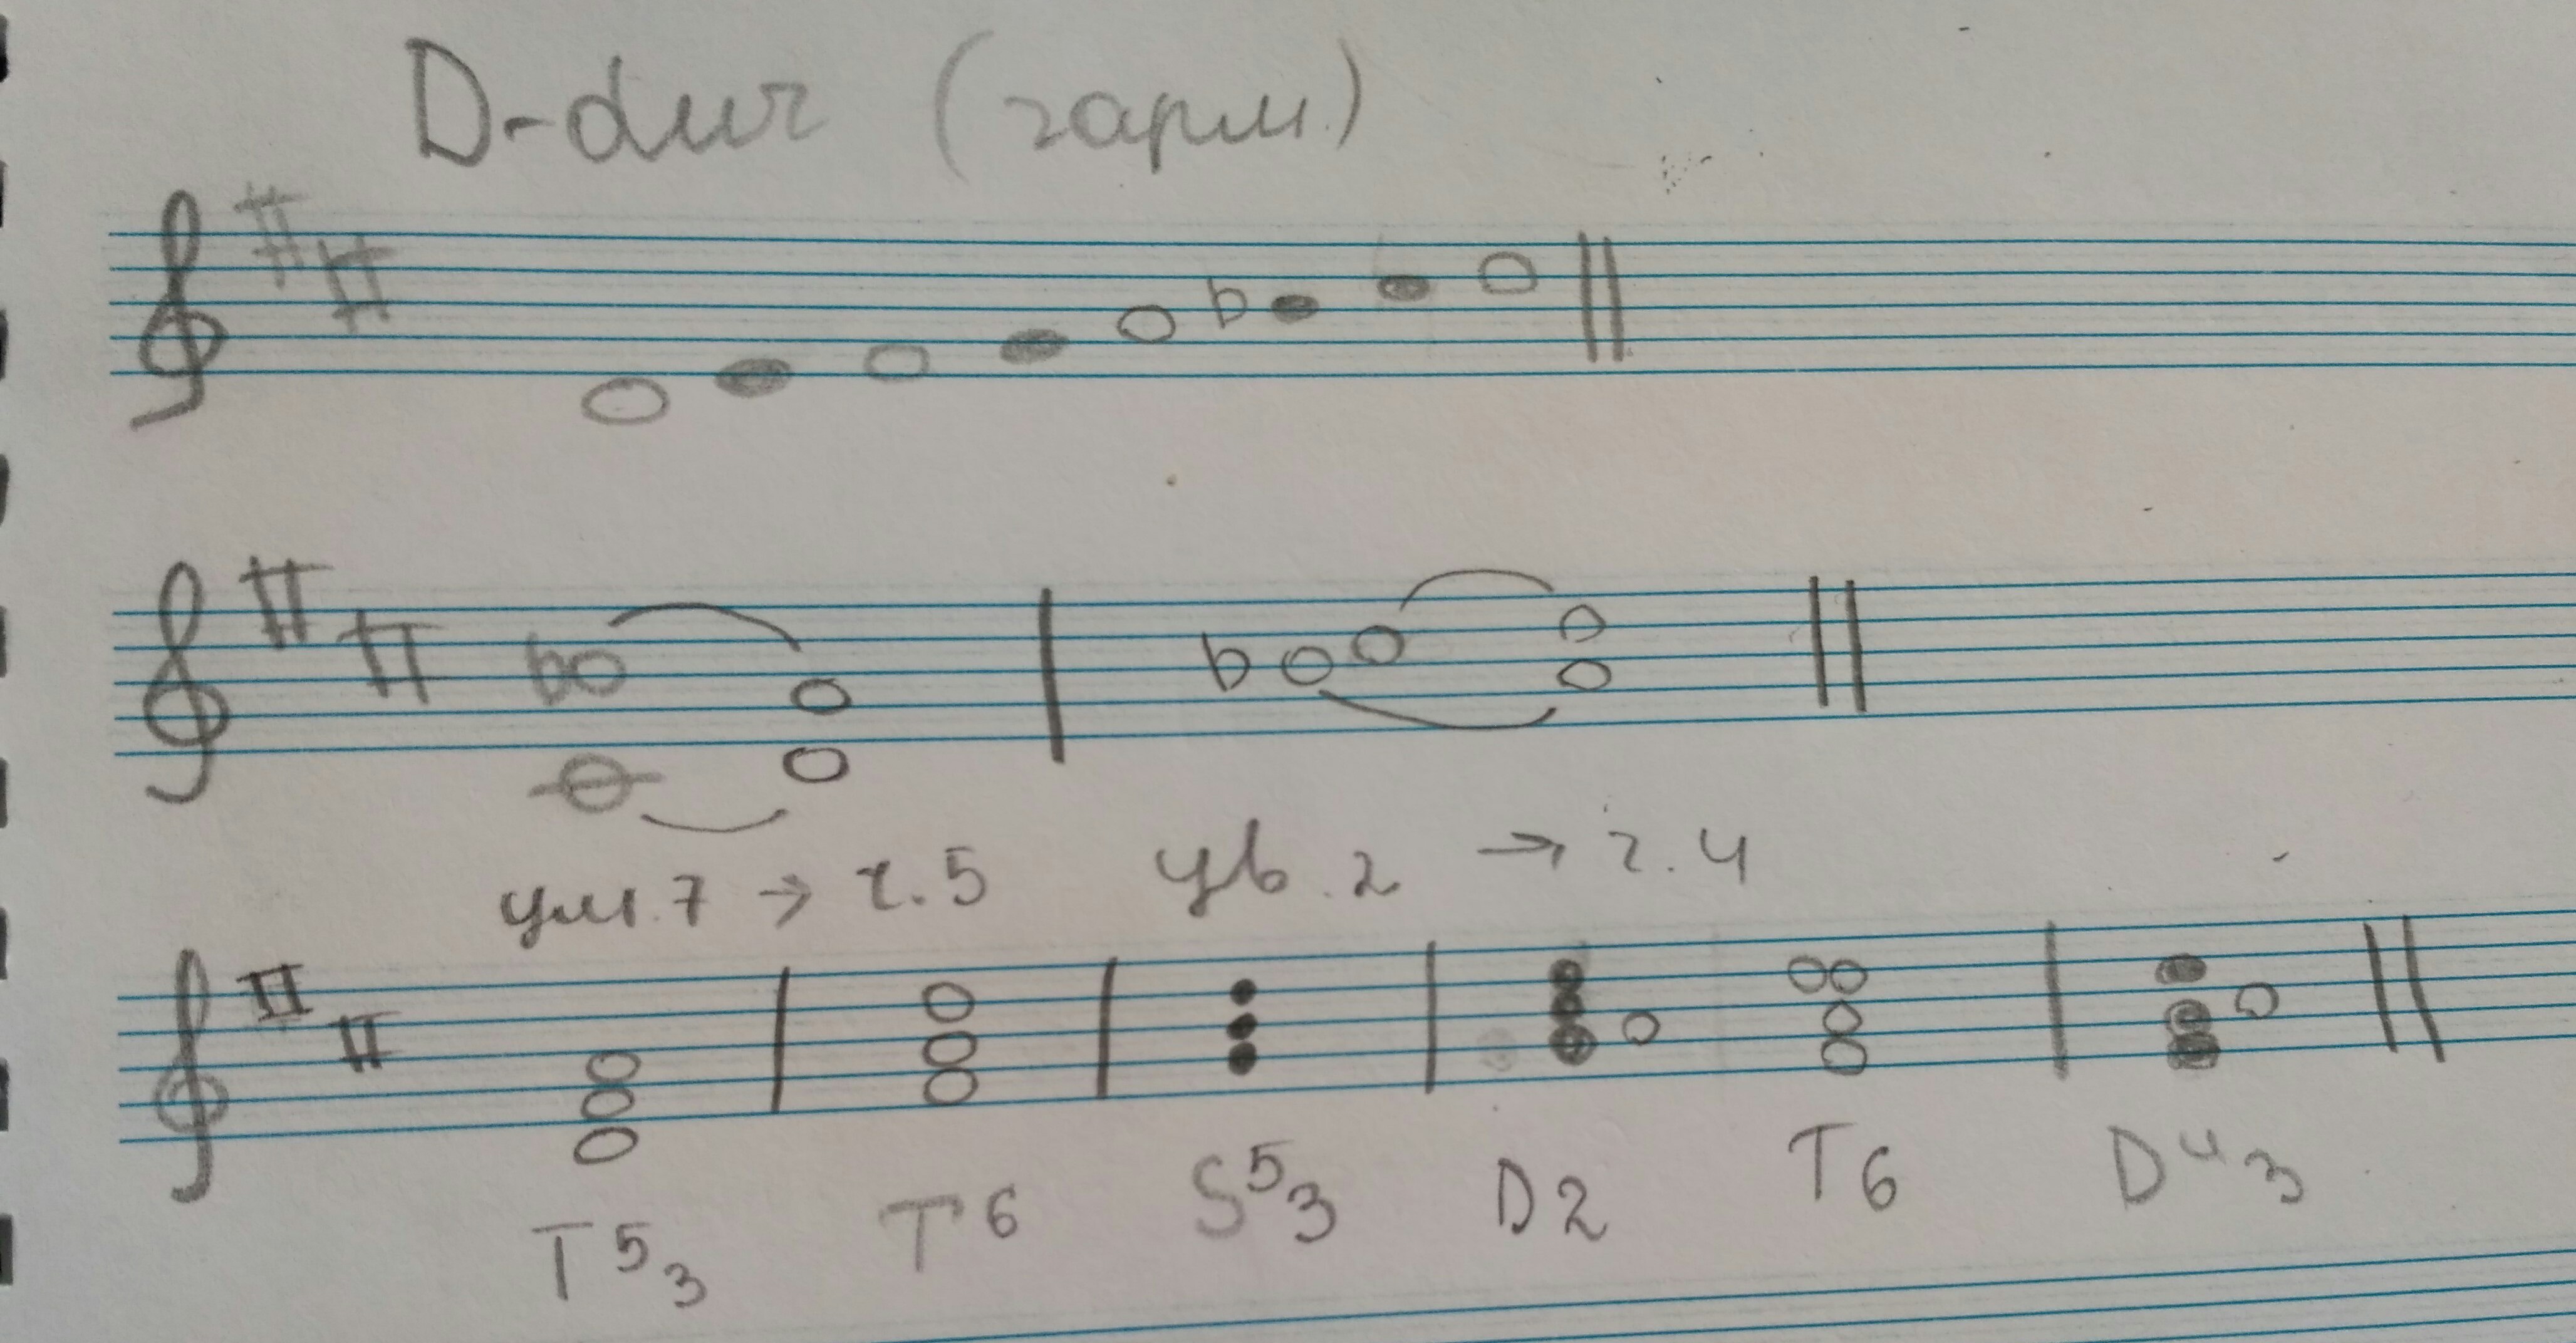 D-dur (гарм.)
ум.7 → ч.5 ув.2 → ч.4
T⁵₃ T⁶ S⁵₃ D2 T6 D⁴₃